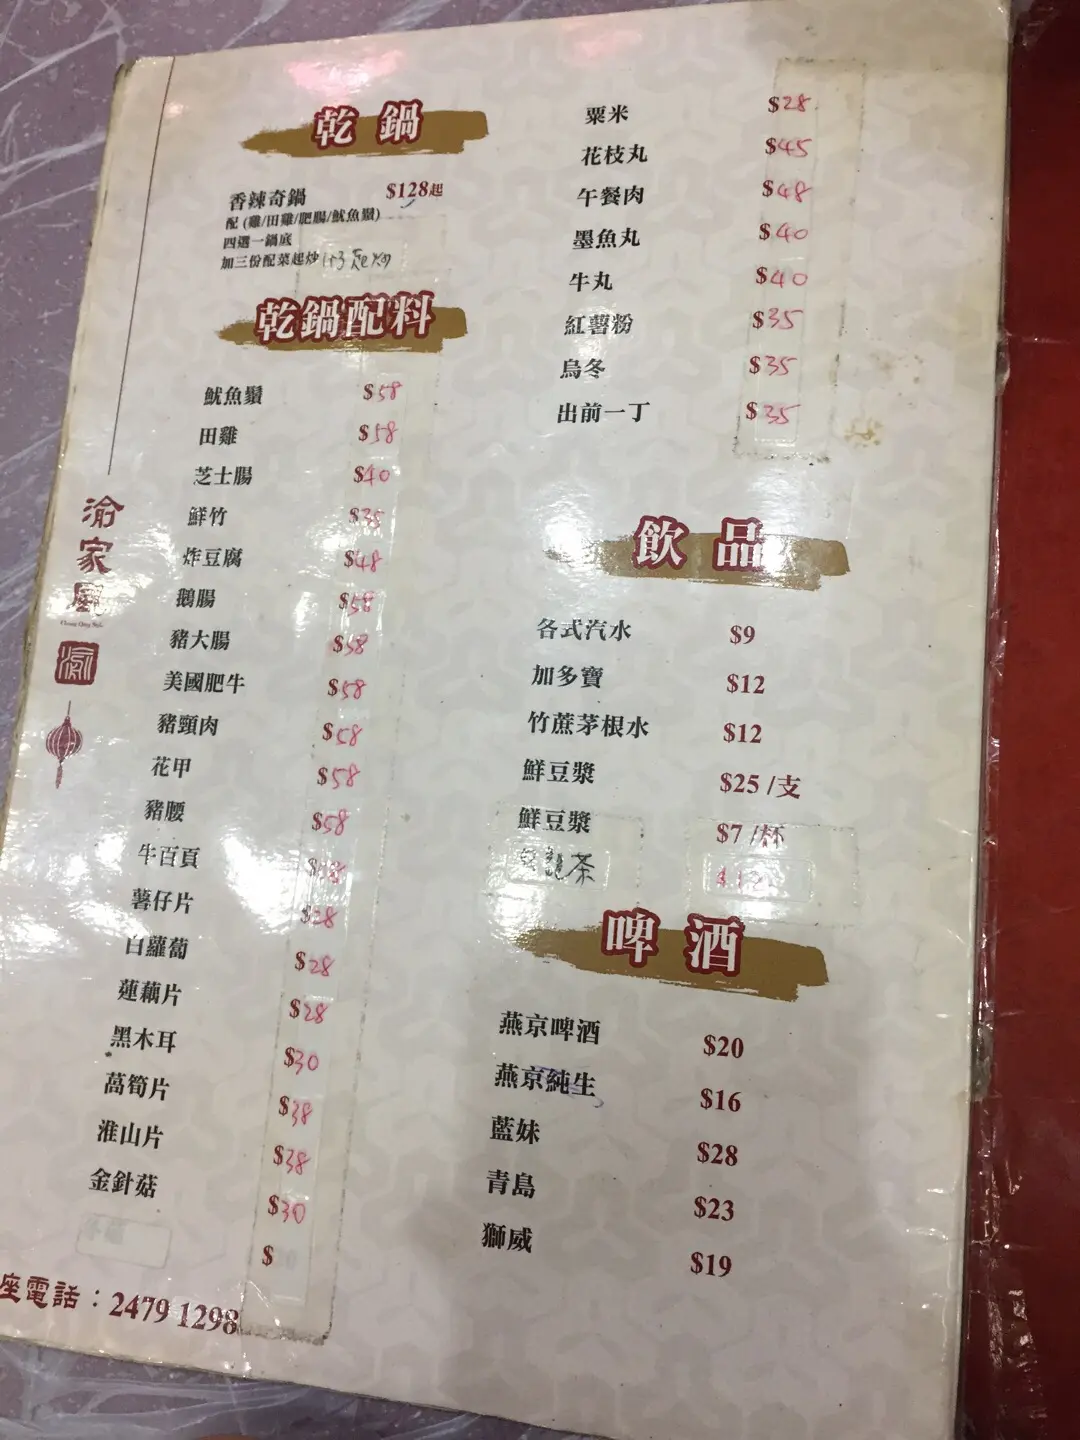 乾鍋
香辣奇鍋 $128起
配 (雞/田雞/肥腸/魷魚鬚)
四選一鍋底
加三份配菜起炒
乾鍋配料
魷魚鬚 $58
田雞 $58
芝士腸 $40
鮮竹 $35
炸豆腐 $48
鵝腸 $58
豬大腸 $58
美國肥牛 $58
豬頸肉 $58
花甲 $58
豬腰 $58
牛百頁
薯仔片 $28
白蘿蔔 $28
蓮藕片 $28
黑木耳 $30
萵筍片 $38
淮山片 $38
金針菇 $30
$
座電話：2479 1298
渝家風
Chong Qing Style
渝
粟米 $28
花枝丸 $45
午餐肉 $48
墨魚丸 $40
牛丸 $40
紅薯粉 $35
烏冬 $35
出前一丁 $35
飲品
各式汽水 $9
加多寶 $12
竹蔗茅根水 $12
鮮豆漿 $25 /支
鮮豆漿 $7 /杯
茶 $12
啤酒
燕京啤酒 $20
燕京純生 $16
藍妹 $28
青島 $23
獅威 $19